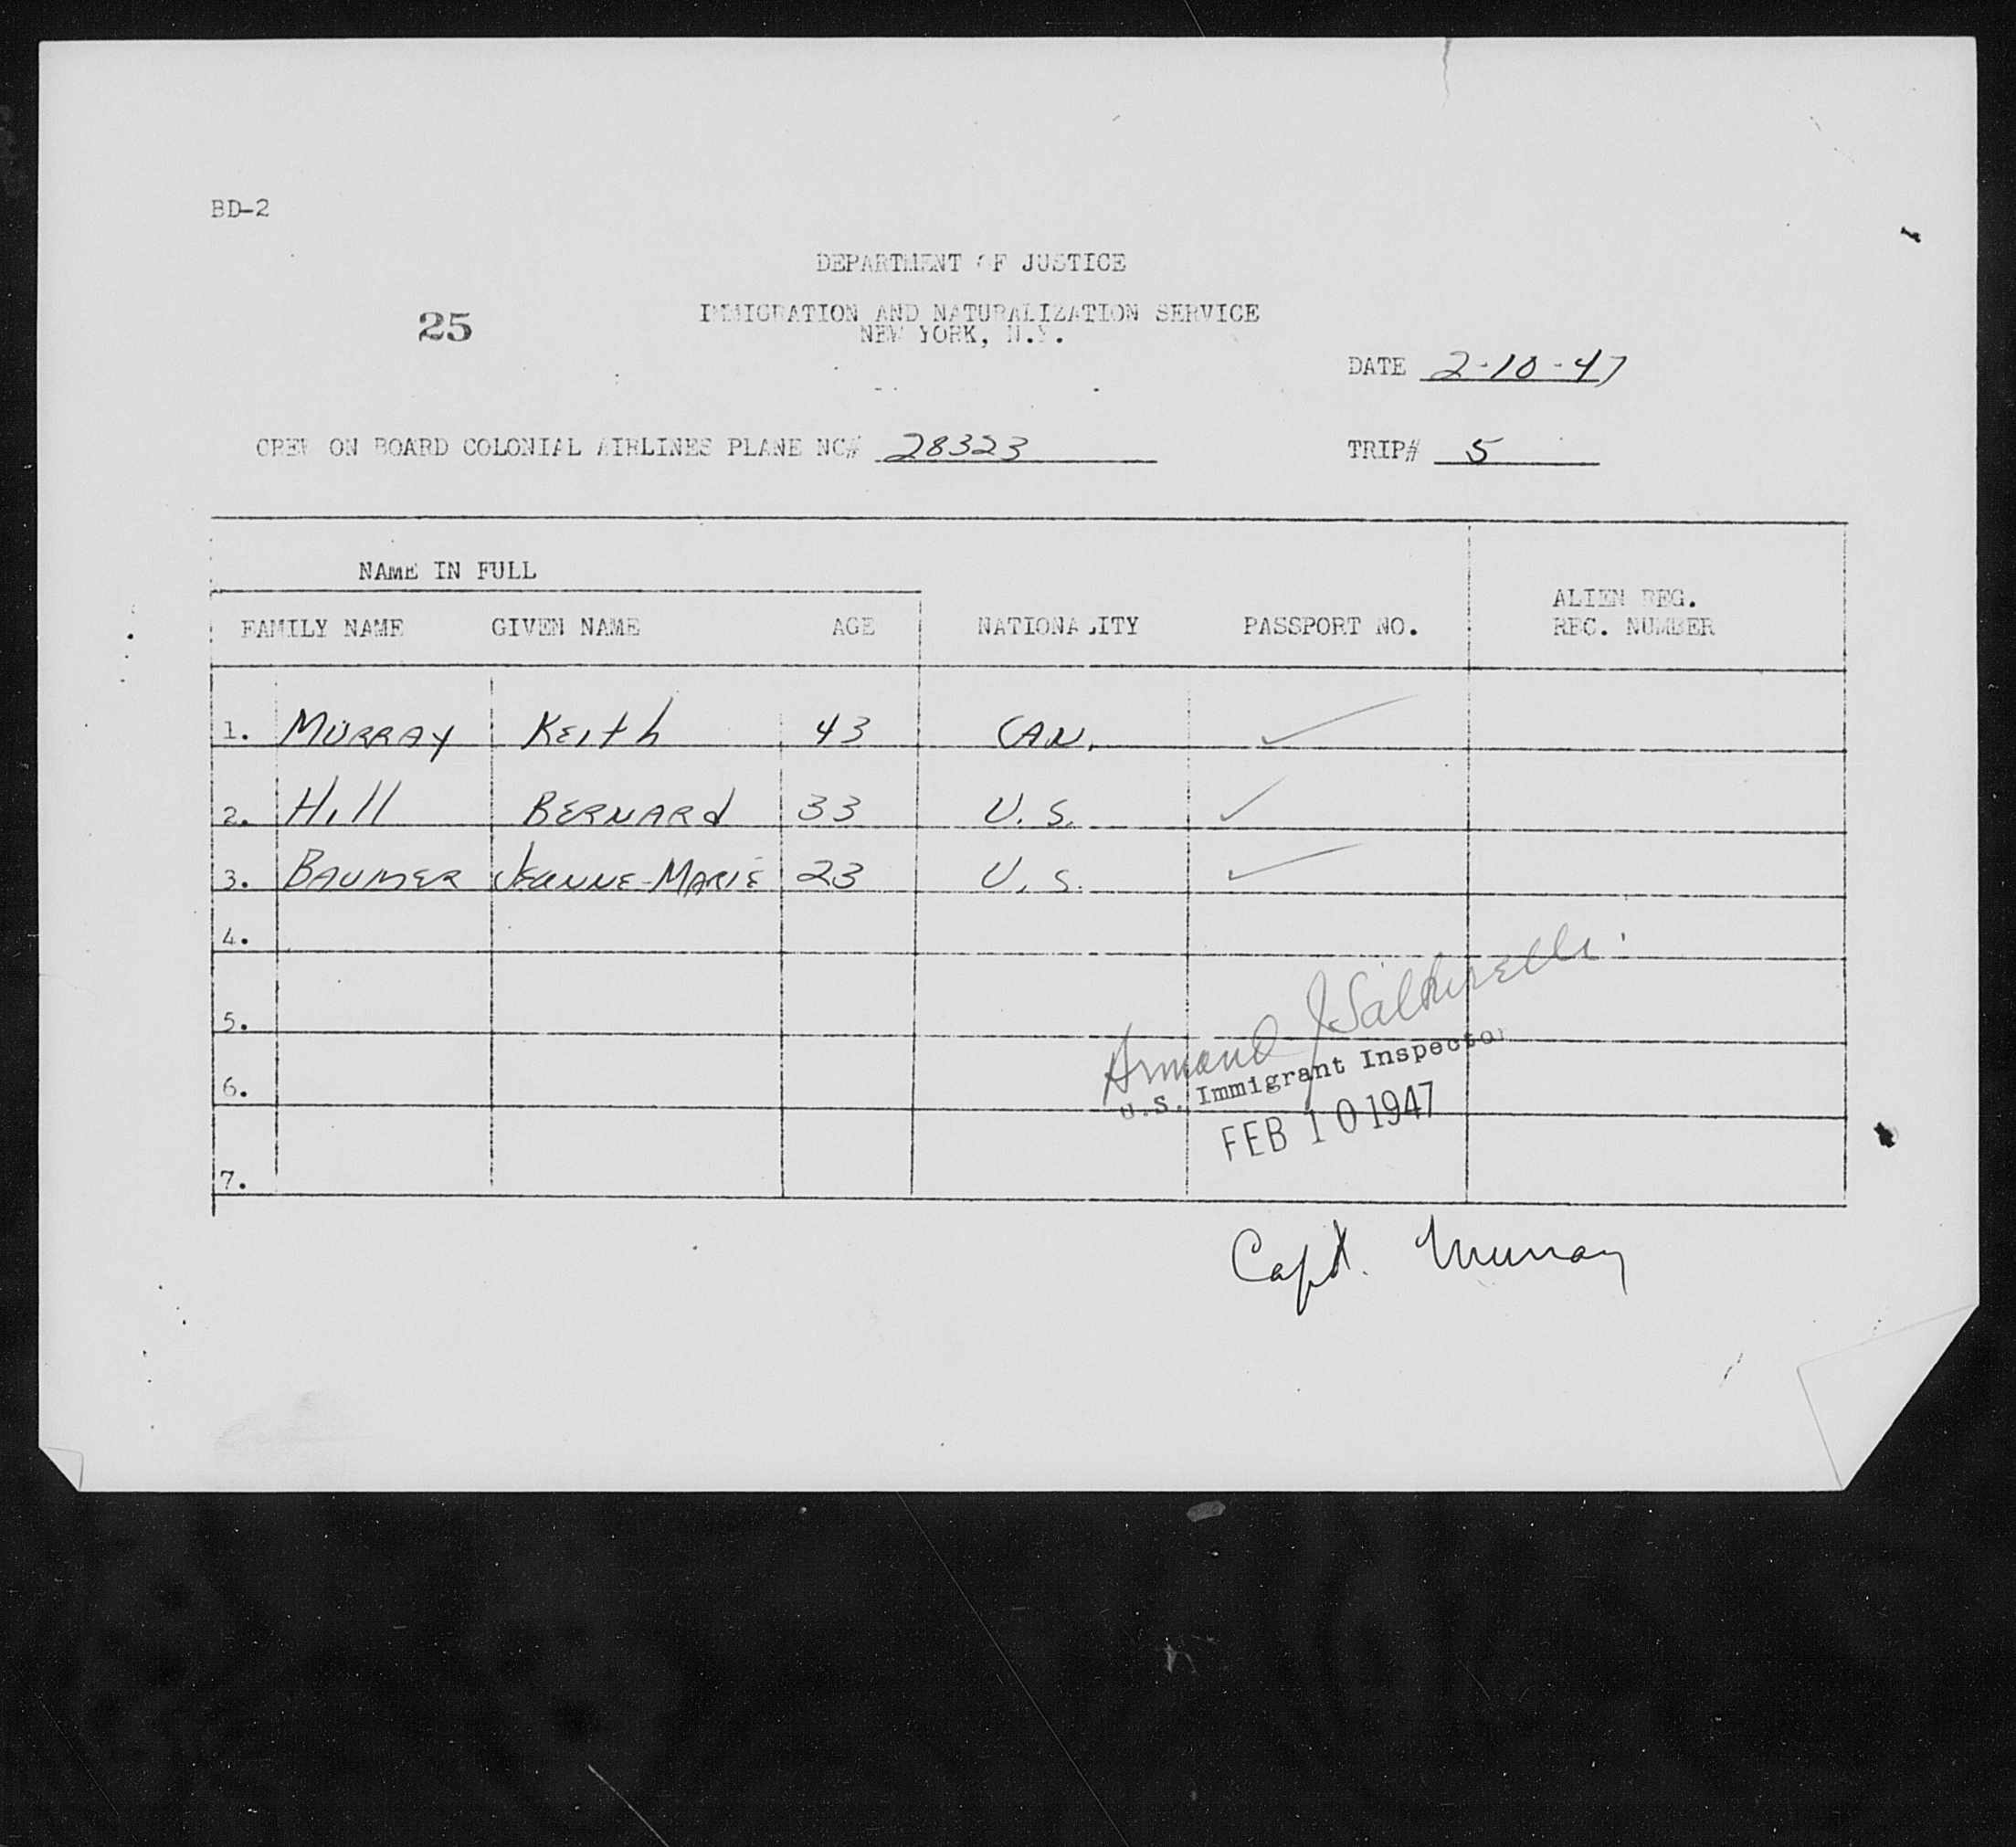 BD-2
DEPARTMENT OF JUSTICE
25
IMMIGRATION AND NATURALIZATION SERVICE
NEW YORK, N.Y.
DATE 2-10-47
CREW ON BOARD COLONIAL AIRLINES PLANE NC# 28323 TRIP# 5
NAME IN FULL
FAMILY NAME GIVEN NAME AGE NATIONALITY PASSPORT NO. ALIEN REG. REC. NUMBER
1. MURRAY KEith 43 CAN. ✓
2. Hill BERNARd 33 U.S. ✓
3. BAUMER JEANNE-MARIE 23 U.S. ✓
4.
5.
6.
7.
Armand J
U.S. Immigrant Inspector
FEB 10 1947
Capt. Murray